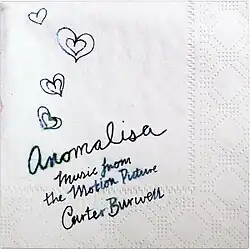 Anomalisa
Music from
the Motion Picture
Carter Burwell